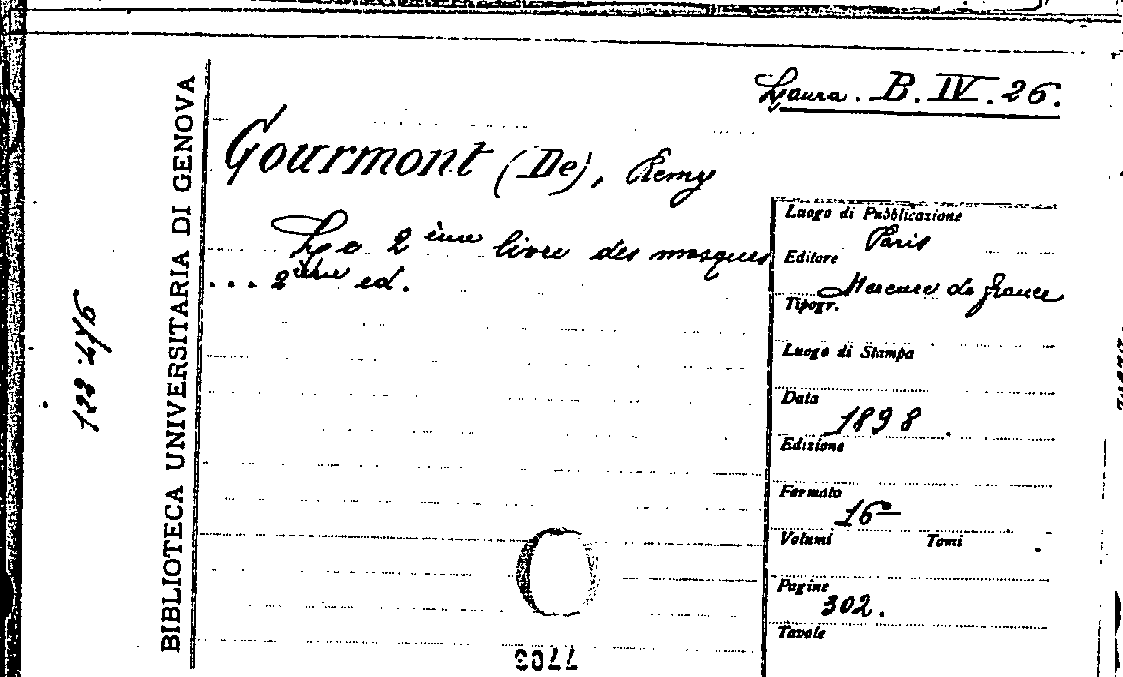 Laura. B. IV. 26.
Gourmont (De), Remy
Le 2ème livre des masques
... 2ième ed.
BIBLIOTECA UNIVERSITARIA DI GENOVA
Luogo di Pubblicazione
Paris
Editore
Mercure de france
Tipogr.
Luogo di Stampa
Data
1898
Edizione
Formato
16º
Volumi Tomi
Pagine
302.
Tavole
7703